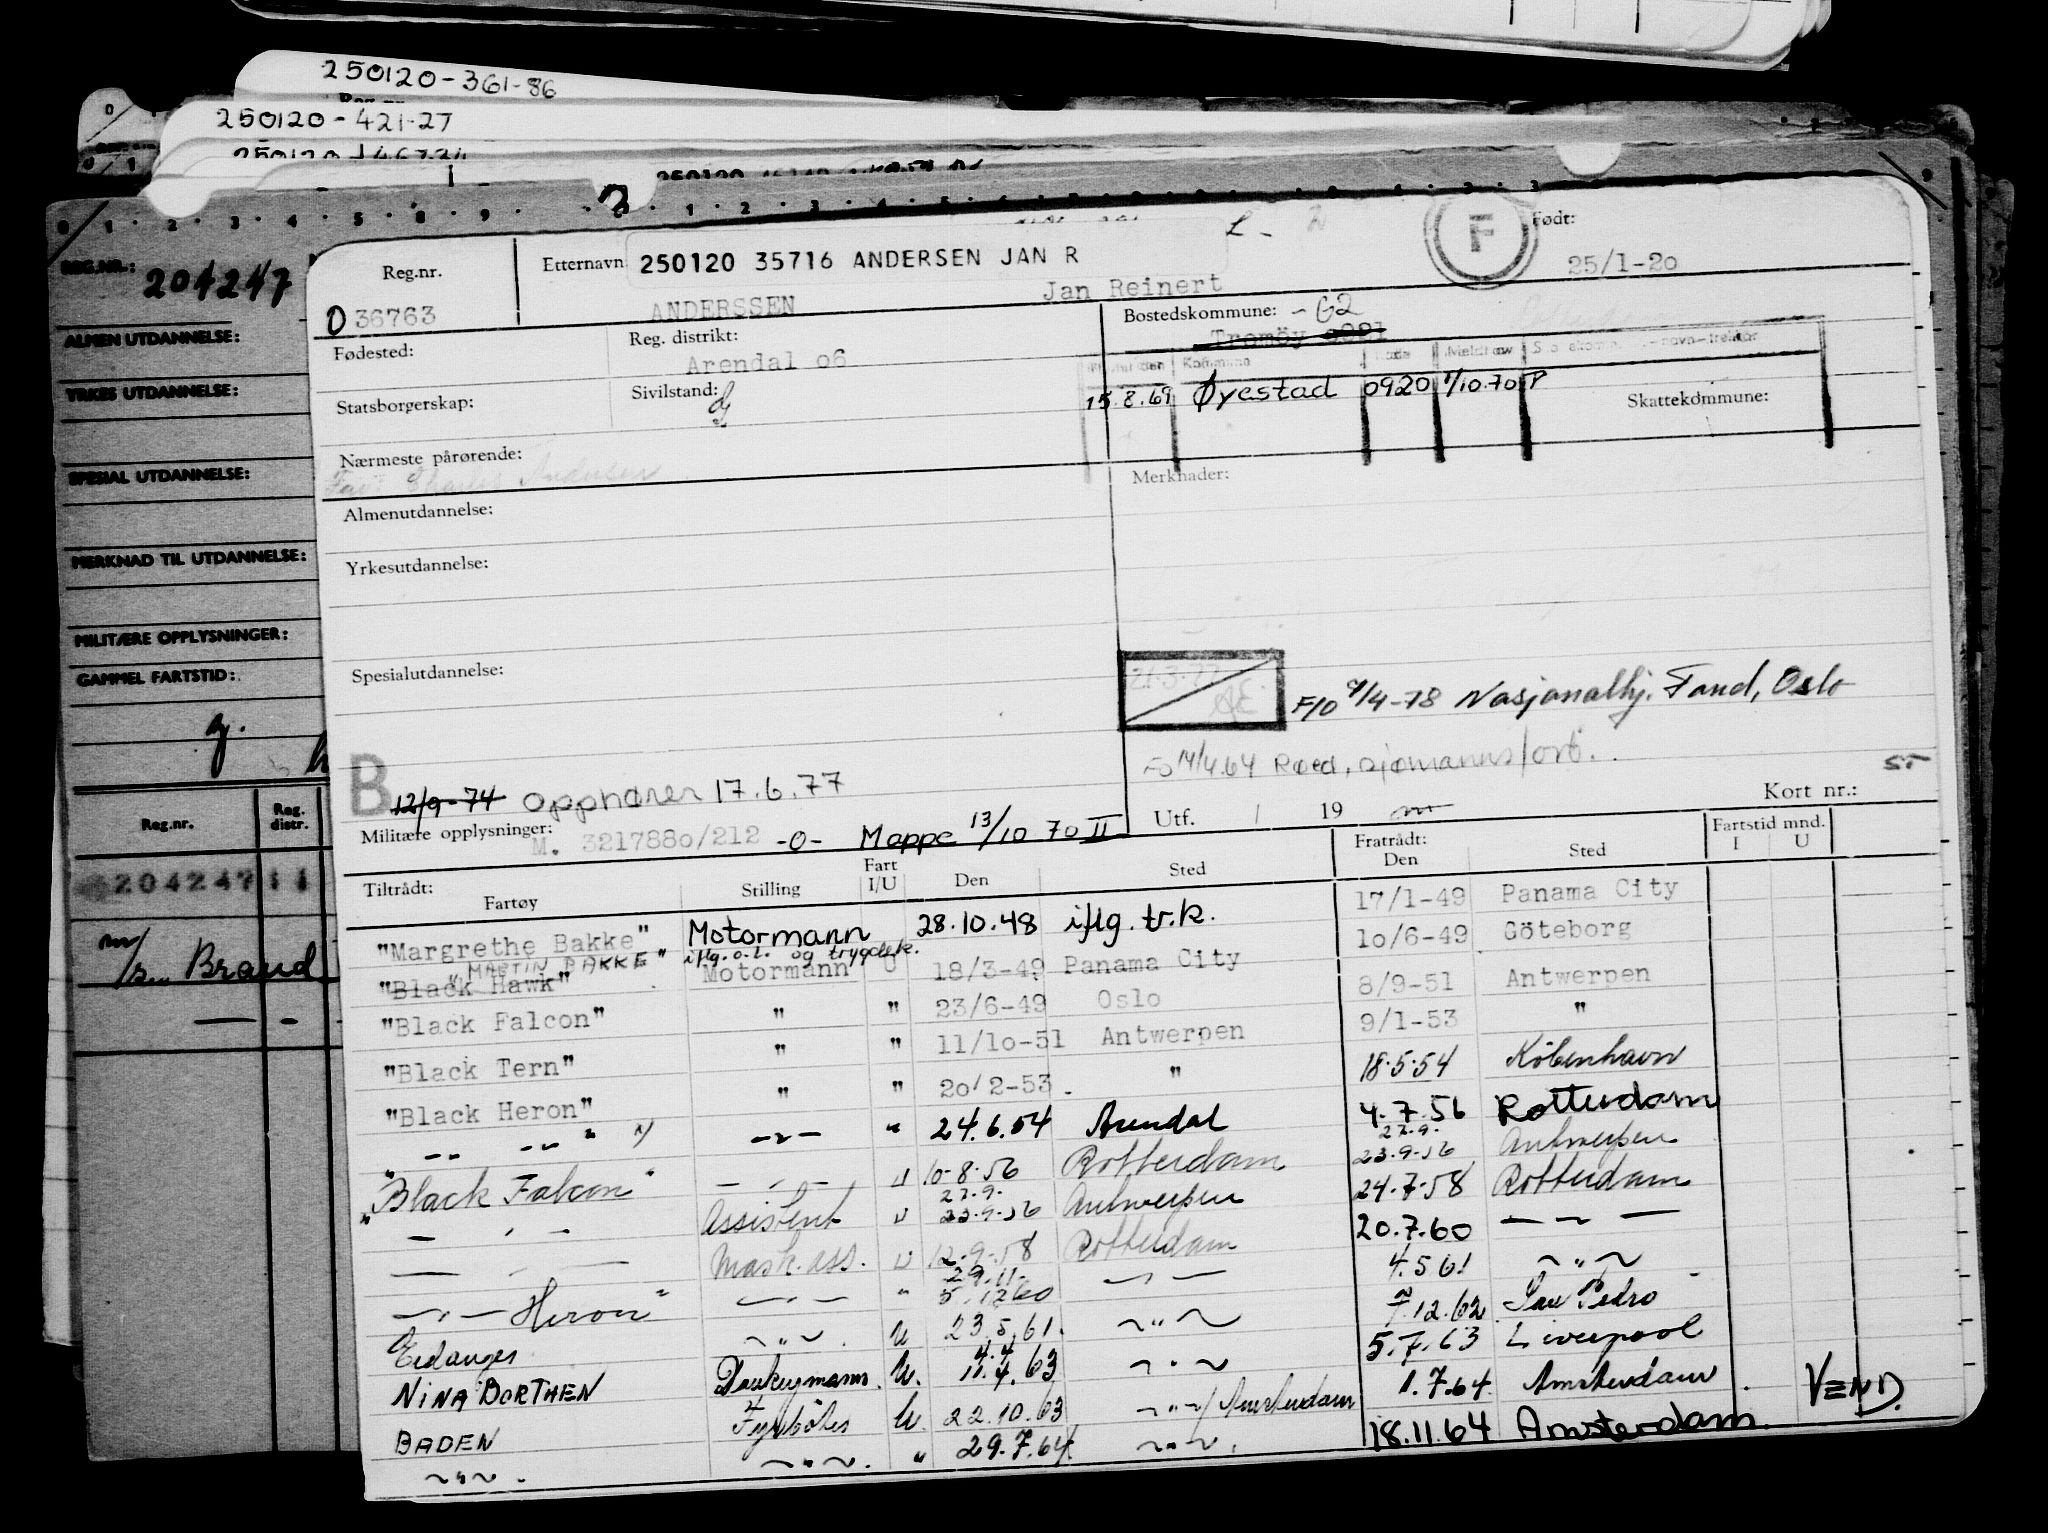 250120-361-86
250120-421-27
REG.NR.: 204247
ALMEN UTDANNELSE:
YRKES UTDANNELSE:
SPESIAL UTDANNELSE:
MERKNAD TIL UTDANNELSE:
MILITÆRE OPPLYSNINGER:
GAMMEL FARTSTID:
g.
Reg.nr. Reg. distr.
204247 11
m/s. Brand
Reg.nr. Etternavn 250120 35716 ANDERSEN JAN R F Født:
25/1-20
0 36763 ANDERSSEN Jan Reinert
Fødested: Reg. distrikt: Bostedskommune: -G2
Arendal o6 Tromöy
Kommune
Statsborgerskap: Sivilstand: g 15.8.69 Øyestad 0920 1/10.70 P Skattekommune:
Nærmeste pårørende: Merknader:
Far: Charles Andersen
Almenutdannelse:
Yrkesutdannelse:
Spesialutdannelse:
21.3.77 F/O 4/4-78 Nasjonalhj. Fond, Oslo
Fo 14/4.64 Roed, sjømannsford.
B 12/9-74 opphører 17.6.77
Utf. / 19 Kort nr.:
Militære opplysninger: M. 3217880/212 -0- Mappe 13/10 70 II
Tiltrådt: Fratrådt: Fartstid mnd.
Fartøy Stilling Fart I/U Den Sted Den Sted I U
"Margrethe Bakke" Motormann 28.10.48 iflg. tr.k. 17/1-49 Panama City
"MARTIN BAKKE" iflg. o.l. og trygdek.
"Black Hawk" Motormann U 18/3-49 Panama City 10/6-49 Göteborg
"Black Falcon" " " 23/6-49 Oslo 8/9-51 Antwerpen
"Black Tern" " " 11/10-51 Antwerpen 9/1-53 "
"Black Heron" " " 20/2-53 " 18.5.54 København
" -- -- " -"- " 24.6.54 Arendal 4.7.56 Rotterdam
"Black Falcon" -"- U 10-8-56 Rotterdam 27.9. 23.9-56 Antwerpen
" - " - Assistent U 27.9. 23.9-56 Antwerpen 24.7.58 Rotterdam
- " - Mask.ass. U 12-9-58 Rotterdam 20.7.60 - " -
-"- Heron" -"- " 29.11. 5.12 60 -"- 4.5 61 -"-
Erdanger -"- U 23.5.61. -"- 7.12.62 San Pedro
NINA BORTHEN Donkeymann. U. 4.4. 11.4.63 -"- 5.7.63 Liverpool
BADEN Fyrbøter U. 22.10.63 -"-/Amsterdam 1.7.64. Amsterdam
-"-. -"-. " 29.7.64 -"-. 18.11.64 Amsterdam.
VEND.